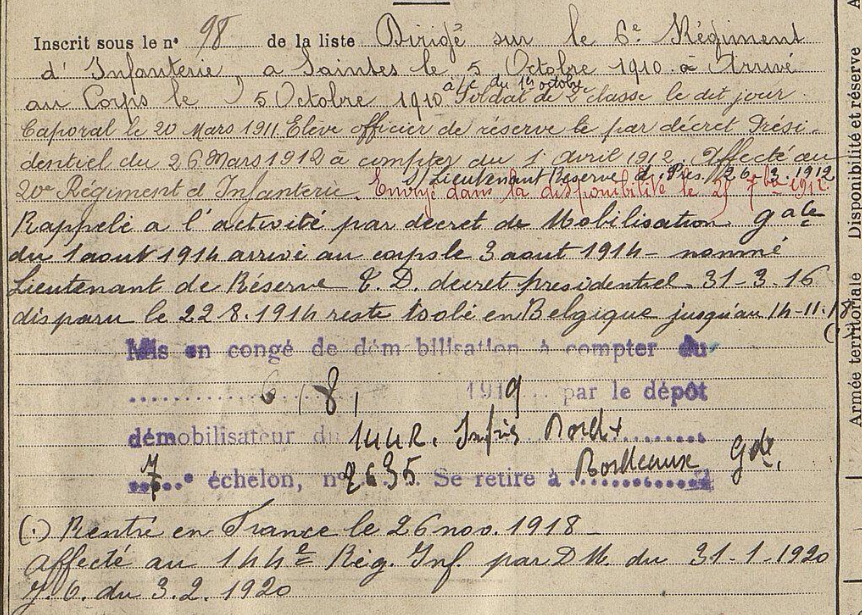 Inscrit sous le n° 98 de la liste Dirigé sur le 6e Régiment
d'Infanterie, a Saintes le 5 Octobre 1910 à Arrivé
à c. du 1er octobre
au Corps le 5 Octobre 1910 Soldat de 2e classe le dit jour.
Caporal le 20 Mars 1911 Elève officier de réserve le par décret Prési-
dentiel du 26 Mars 1912 à compter du 1 Avril 1912. Affecté au
S/Lieutenant Réserve d. Prés. 26.3.1912
20e Régiment d'Infanterie. Envoyé dans la disponibilité le 25 7bre 1912
Rappelé a l'activité par decret de Mobilisation g ale
du 1 aout 1914 arrivé au corps le 3 aout 1914 - nommé
Lieutenant de Réserve T.D. decret presidentiel. 31-3-16
disparu le 22.8.1914 reste en Belgique jusqu'au 14-11-18
(.)
Mis en congé de démobilisation à compter du
6 8, 1919 par le dépôt
démobilisateur du 144 R. Inf
7 échelon, n° 2635. Se retire à Bordeaux Gde.
(.) Rentré en France le 26 nov. 1918 -
affecté au 144e Rég. Inf. par D.M. du 31-1-1920
J.O. du 3.2.1920
Armée territoriale Disponibilité et réserve